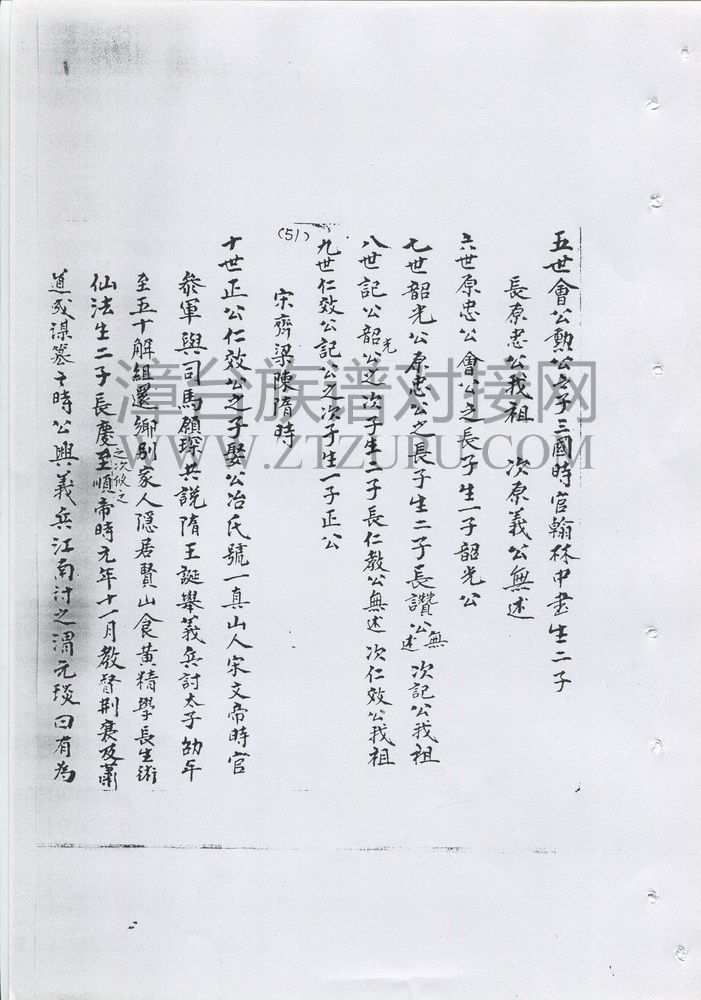 五世會公勲公之子三國時官翰林中書生二子
長原忠公我祖 次原義公無述
六世原忠公會公之長子生一子韶光公
七世韶光公原忠公之長子生二子長讚公無述 次記公我祖
八世記公韶光公之次子生二子長仁教公無述 次仁效公我祖
九世仁效公記公之次子生一子正公
(51)
宋齊梁陳隋時
十世正公仁效公之子娶公冶氏號一真山人宋文帝時官
叅軍與司馬顧琛共説隋王誕舉義兵討太子劭年
至五十解組還鄉别家人隱居賢山食黄精學長生術
仙法生二子長慶之次攸之至順帝時元年十一月教督荆襄及蕭
道成謀篡之時公興義兵江南討之渭元琰曰有為
漳台族谱对接网
WWW.ZTZUPU.COM